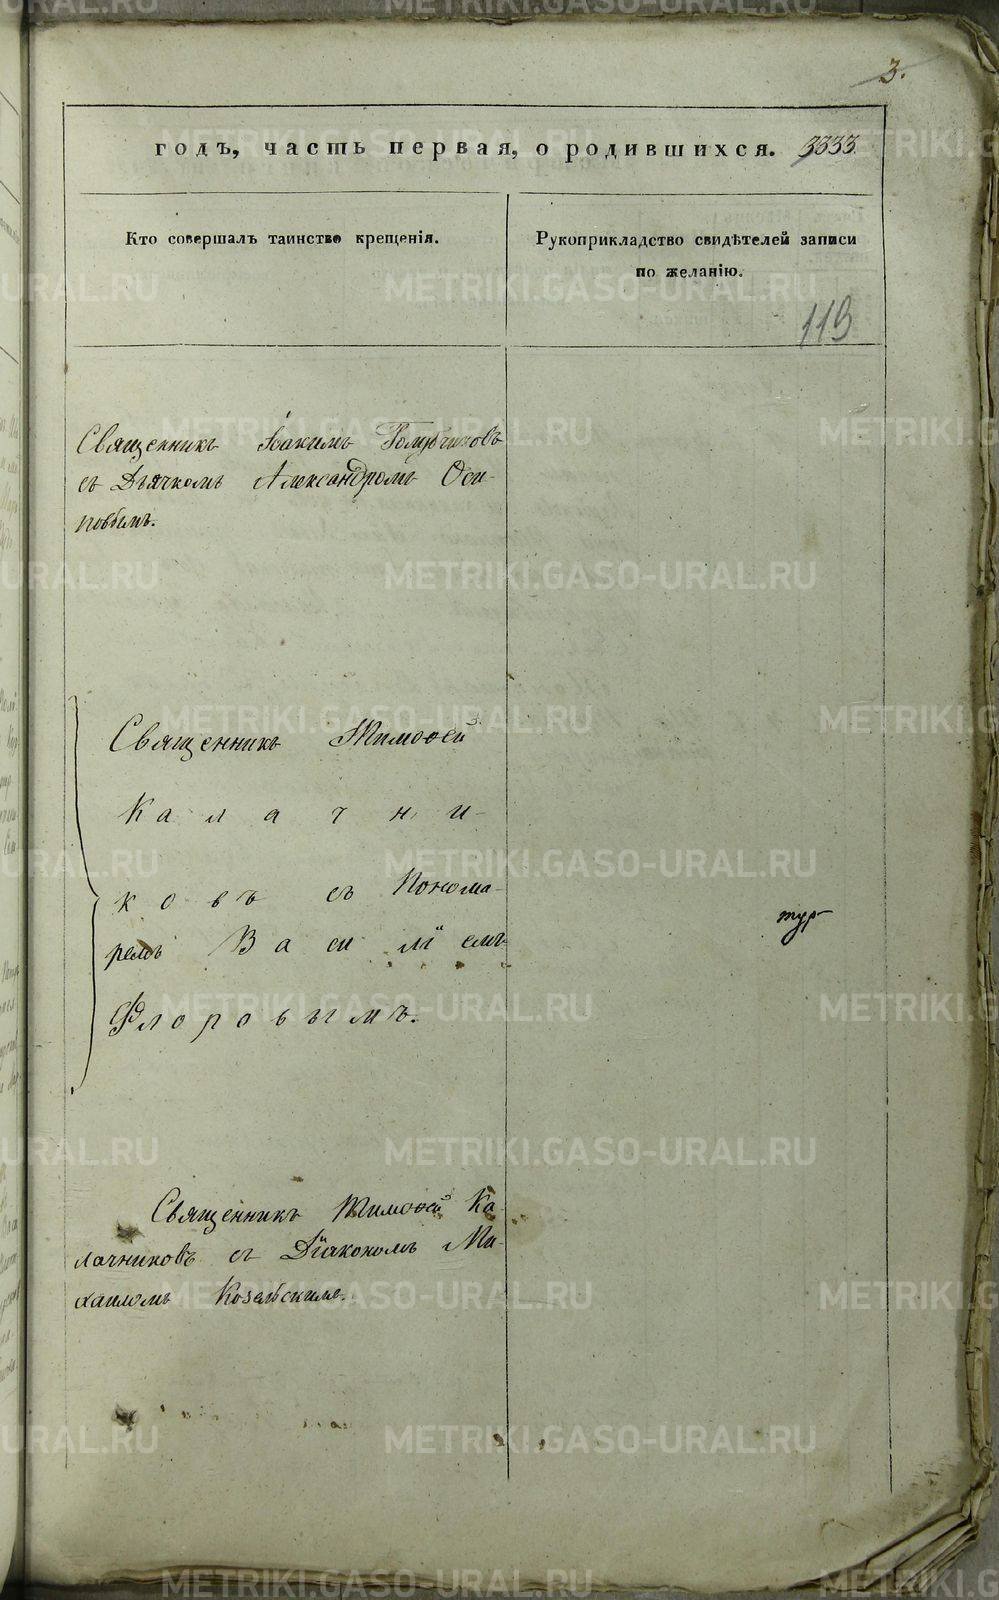 3.
годъ, часть первая, о родившихся. 3333.
Кто совершалъ таинство крещенія.
Рукоприкладство свидѣтелей записи
по желанію.
119
Священникъ Іоакимъ Голубчиковъ
съ Дьячкомъ Александромъ Оси-
повымъ.
Священникъ Тимоѳей
Калачни-
ковъ съ Понома-
ремъ Василіемъ
Флоровымъ.
Священникъ Тимоѳей Ка-
лачниковъ съ Діакономъ Ми-
хаиломъ Козельскимъ.
METRIKI.GASO-URAL.RU